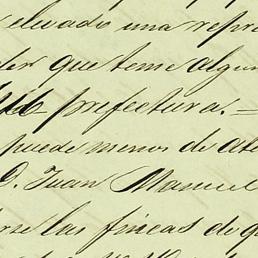 elevado una repre
der que teme algun
prefectura. =
puede menos de ate
D. Juan Manuel
las fincas de q